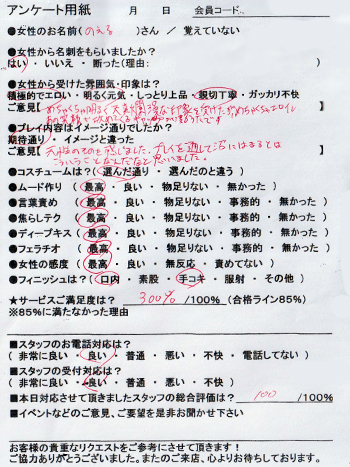 アンケート用紙　　月　　日　会員コード
●女性のお名前(のえる)さん / 覚えていない
●女性から名刺をもらいましたか?
はい・いいえ・断った(理由:　　　　)
●女性から受けた雰囲気・印象は?
積極的でエロい・明るく元気・しっとり上品・親切丁寧・ガッカリ不快
ご意見【めちゃくちゃ明るく天真爛漫な印象を受けた
●プレイ内容はイメージ通りでしたか?
期待通り・イメージと違った
ご意見【プレイを通して
ういうことなんだなと思いました。
●コスチュームは?(選んだ通り・選んだのと違う)
●ムード作り(最高・良い・物足りない・無かった)
●言葉責め(最高・良い・物足りない・事務的・無かった)
●焦らしテク(最高・良い・物足りない・事務的・無かった)
●ディープキス(最高・良い・物足りない・事務的・無かった)
●フェラチオ(最高・良い・物足りない・事務的・無かった)
●女性の感度(最高・良い・無反応・責めてない)
●フィニッシュは?(口内・素股・手コキ・服射・その他)
★サービスご満足度は? 300% /100% (合格ライン85%)
※85%に満たなかった理由
■スタッフのお電話対応は?
(非常に良い・良い・普通・悪い・不快・電話してない)
■スタッフの受付対応は?
(非常に良い・良い・普通・悪い・不快)
■本日対応させて頂きましたスタッフの総合評価は? 100 /100%
■イベントなどのご意見、ご要望を是非お聞かせ下さい
お客様の貴重なリクエストをご参考にさせて頂きます!
ご協力ありがとうございました。またのご来店、心よりお待ちしております。